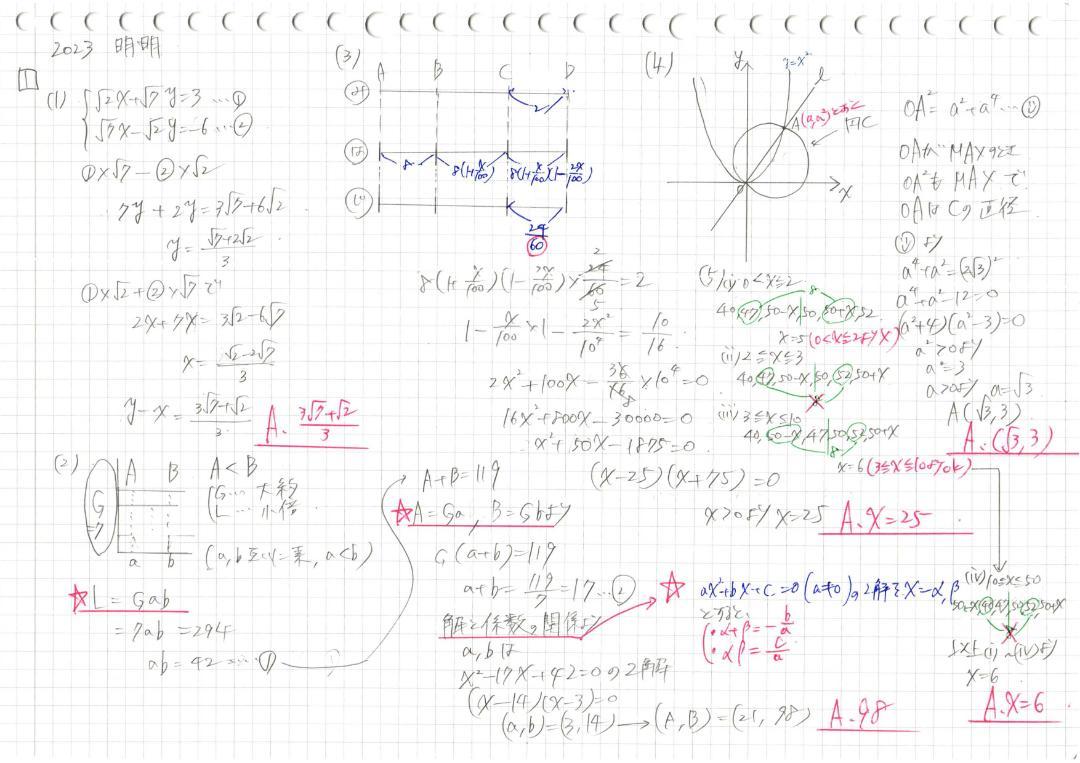 2023 明明
1
(1) { √2x+√7y=3 …①
√7x−√2y=−6 …②
①×√7−②×√2
7y+2y=3√7+6√2
y=(√7+2√2)/3
①×√2+②×√7で
2x+7x=3√2−6√7
x=(√2−2√7)/3
y−x=(3√7+√2)/3
A. (3√7+√2)/3
(2)
A B
G
=7
a b
A<B
G… 大約
L… 小倍
(a,b互いに素, a<b)
☆L=Gab
=7ab=294
ab=42…①
A+B=119
☆A=Ga, B=Gbより
G(a+b)=119
a+b=119/7=17…②
解と係数の関係より
a,bは
x²−17x+42=0の2解
(x−14)(x−3)=0
(a,b)=(3,14)→(A,B)=(21,98)
A. 98
☆ ax²+bx+c=0(a≠0)の2解をx=α,β
とすると、
・α+β=−b/a
・αβ=c/a
(3)
A B C D
み
2
は
8 8(1+x/100) 8(1+x/100)(1−2x/100)
じ
24/60
8(1+x/100)(1−2x/100)×24/60=2
2
5
1−x/100×1−2x²/10⁴=10/16
2x²+100x−36/16×10⁴=0
16x²+800x−30000=0
x²+50x−1875=0
(x−25)(x+75)=0
x>0よりx=25
A. x=25
(4)
y
y=x²
l
A(a,a²)とおく
円C
O
x
OA²=a²+a⁴…①
OAがMAXのとき
OA²もMAXで
OAはCの直径
①より
a⁴+a²=(2√3)²
a⁴+a²−12=0
(a²+4)(a²−3)=0
a²>0より
a²=3
a>0より a=√3
A(√3,3)
A. (√3,3)
(5)(i) 0<x≦2
8
40,47,50−x,50,50+x,52
x=5(0<x≦2より×)
(ii) 2≦x≦3
40,47,50−x,50,52,50+x
(iii) 3≦x≦10
40,50−x,47,50,52,50+x
8
x=6(3≦x≦10よりok)
(iv) 10≦x≦50
50−x,40,47,50,52,50+x
以上(i)~(iv)より
x=6
A. x=6